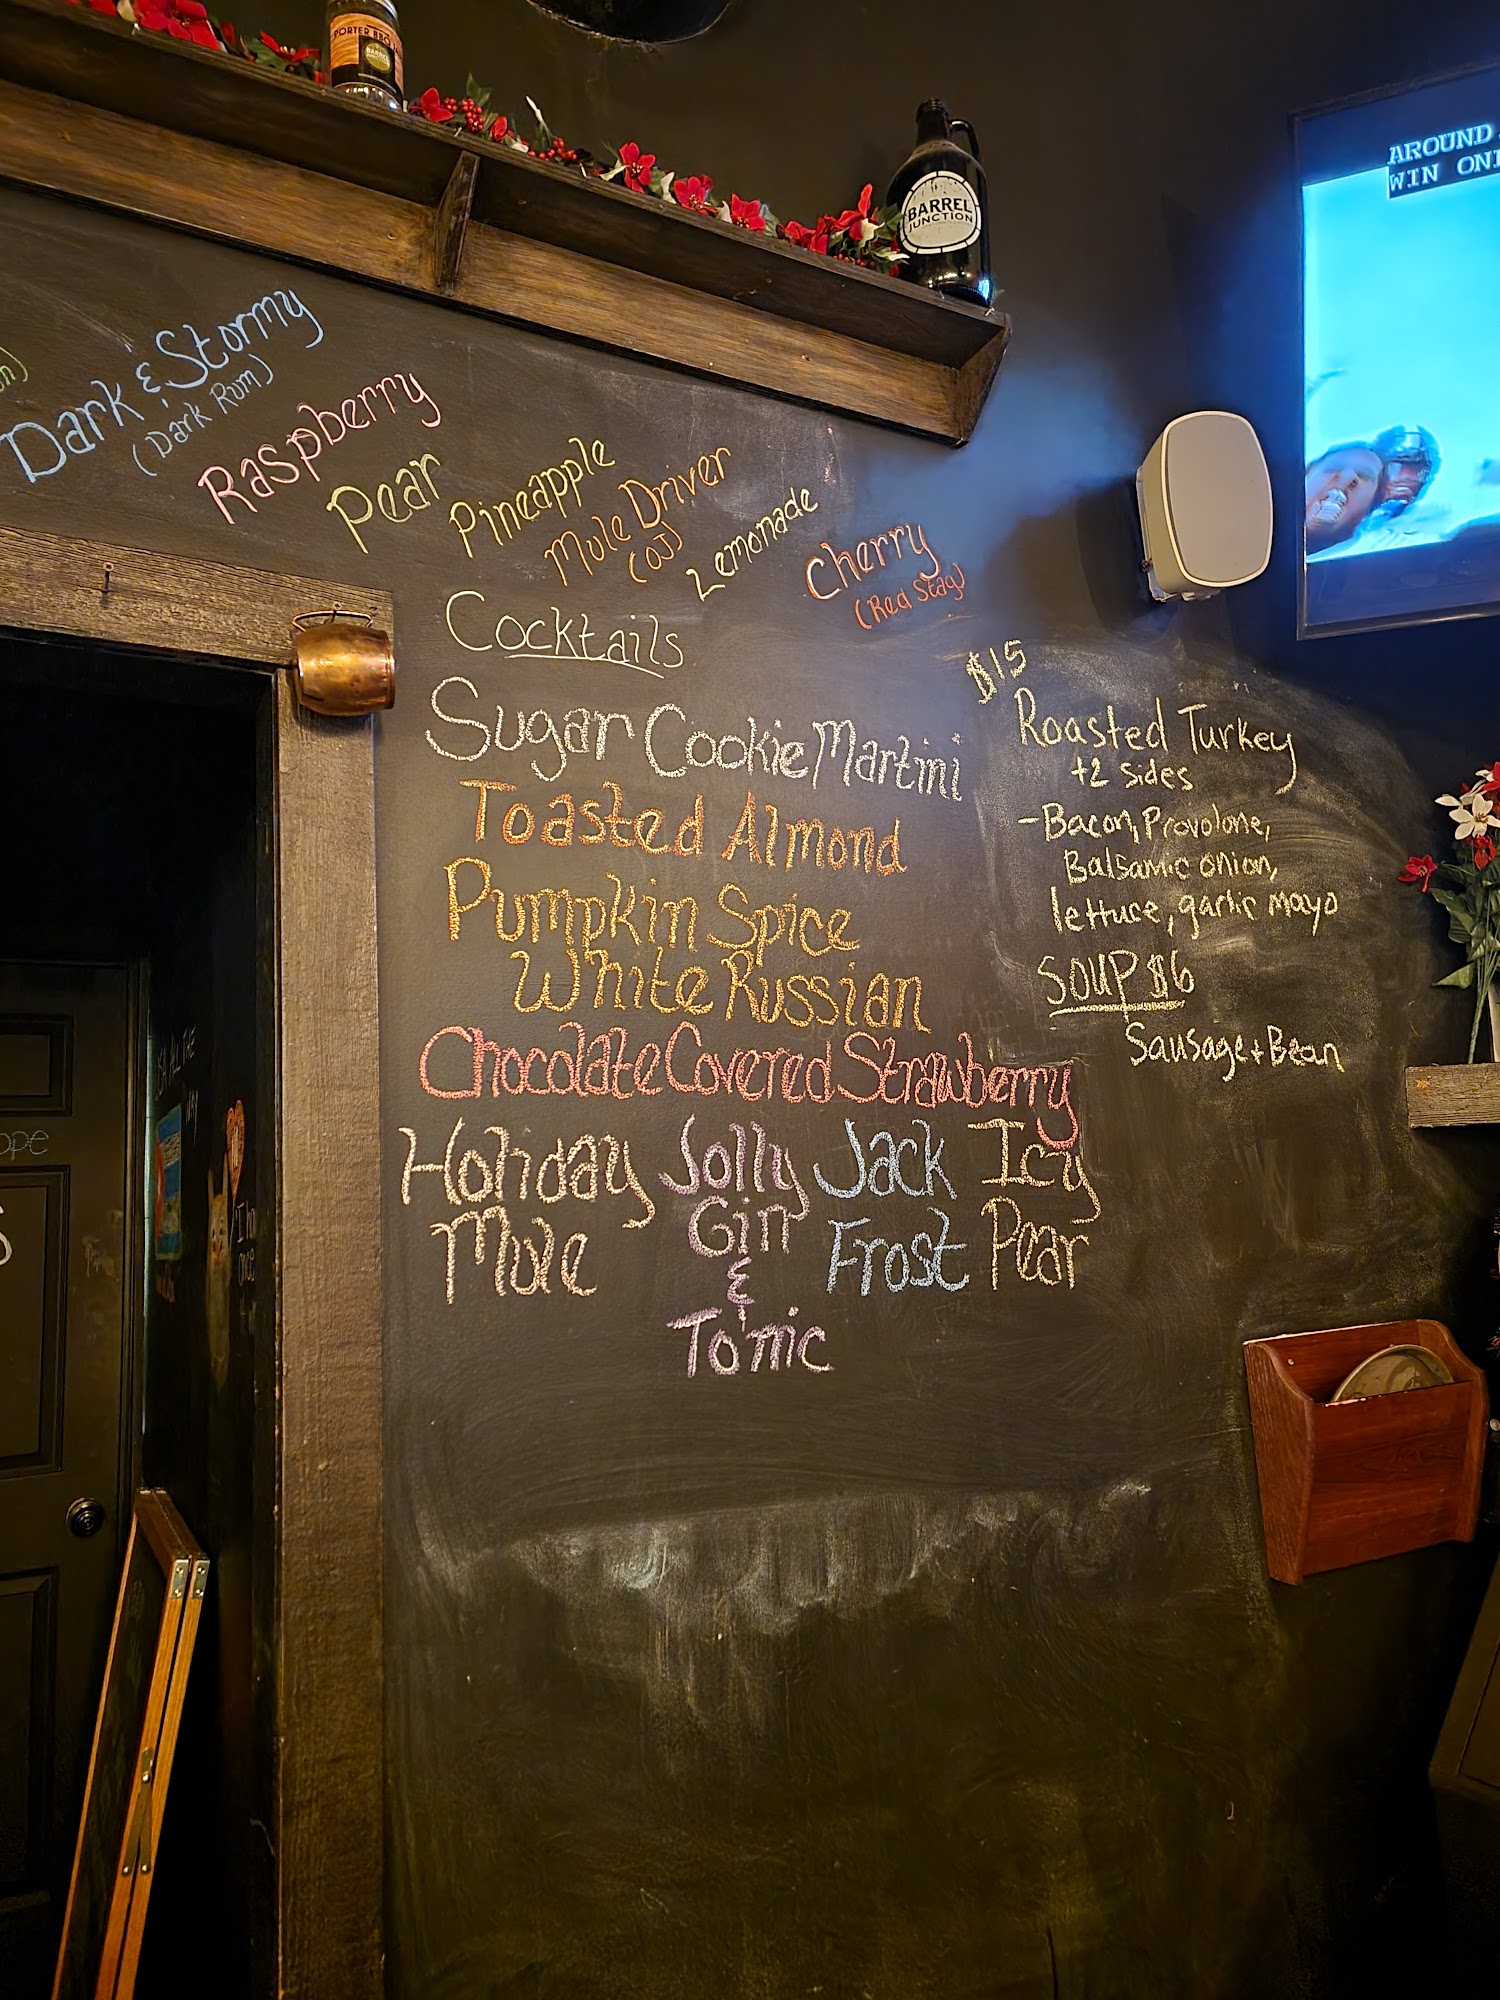 PORTER BBQ
BARREL
BARREL
JUNCTION
AROUND
WIN
Dark & Stormy
(Dark Rum)
Raspberry
Pear
Pineapple
Mule Driver
(OJ)
Lemonade
Cherry
(Red Stag)
Cocktails
Sugar Cookie Martini
Toasted Almond
Pumpkin Spice
White Russian
Chocolate Covered Strawberry
Holiday
Mule
Jolly
Gin
&
Tonic
Jack
Frost
Icy
Pear
$15
Roasted Turkey
+2 Sides
-Bacon, Provolone,
Balsamic onion,
lettuce, garlic mayo
SOUP $6
Sausage + Bean